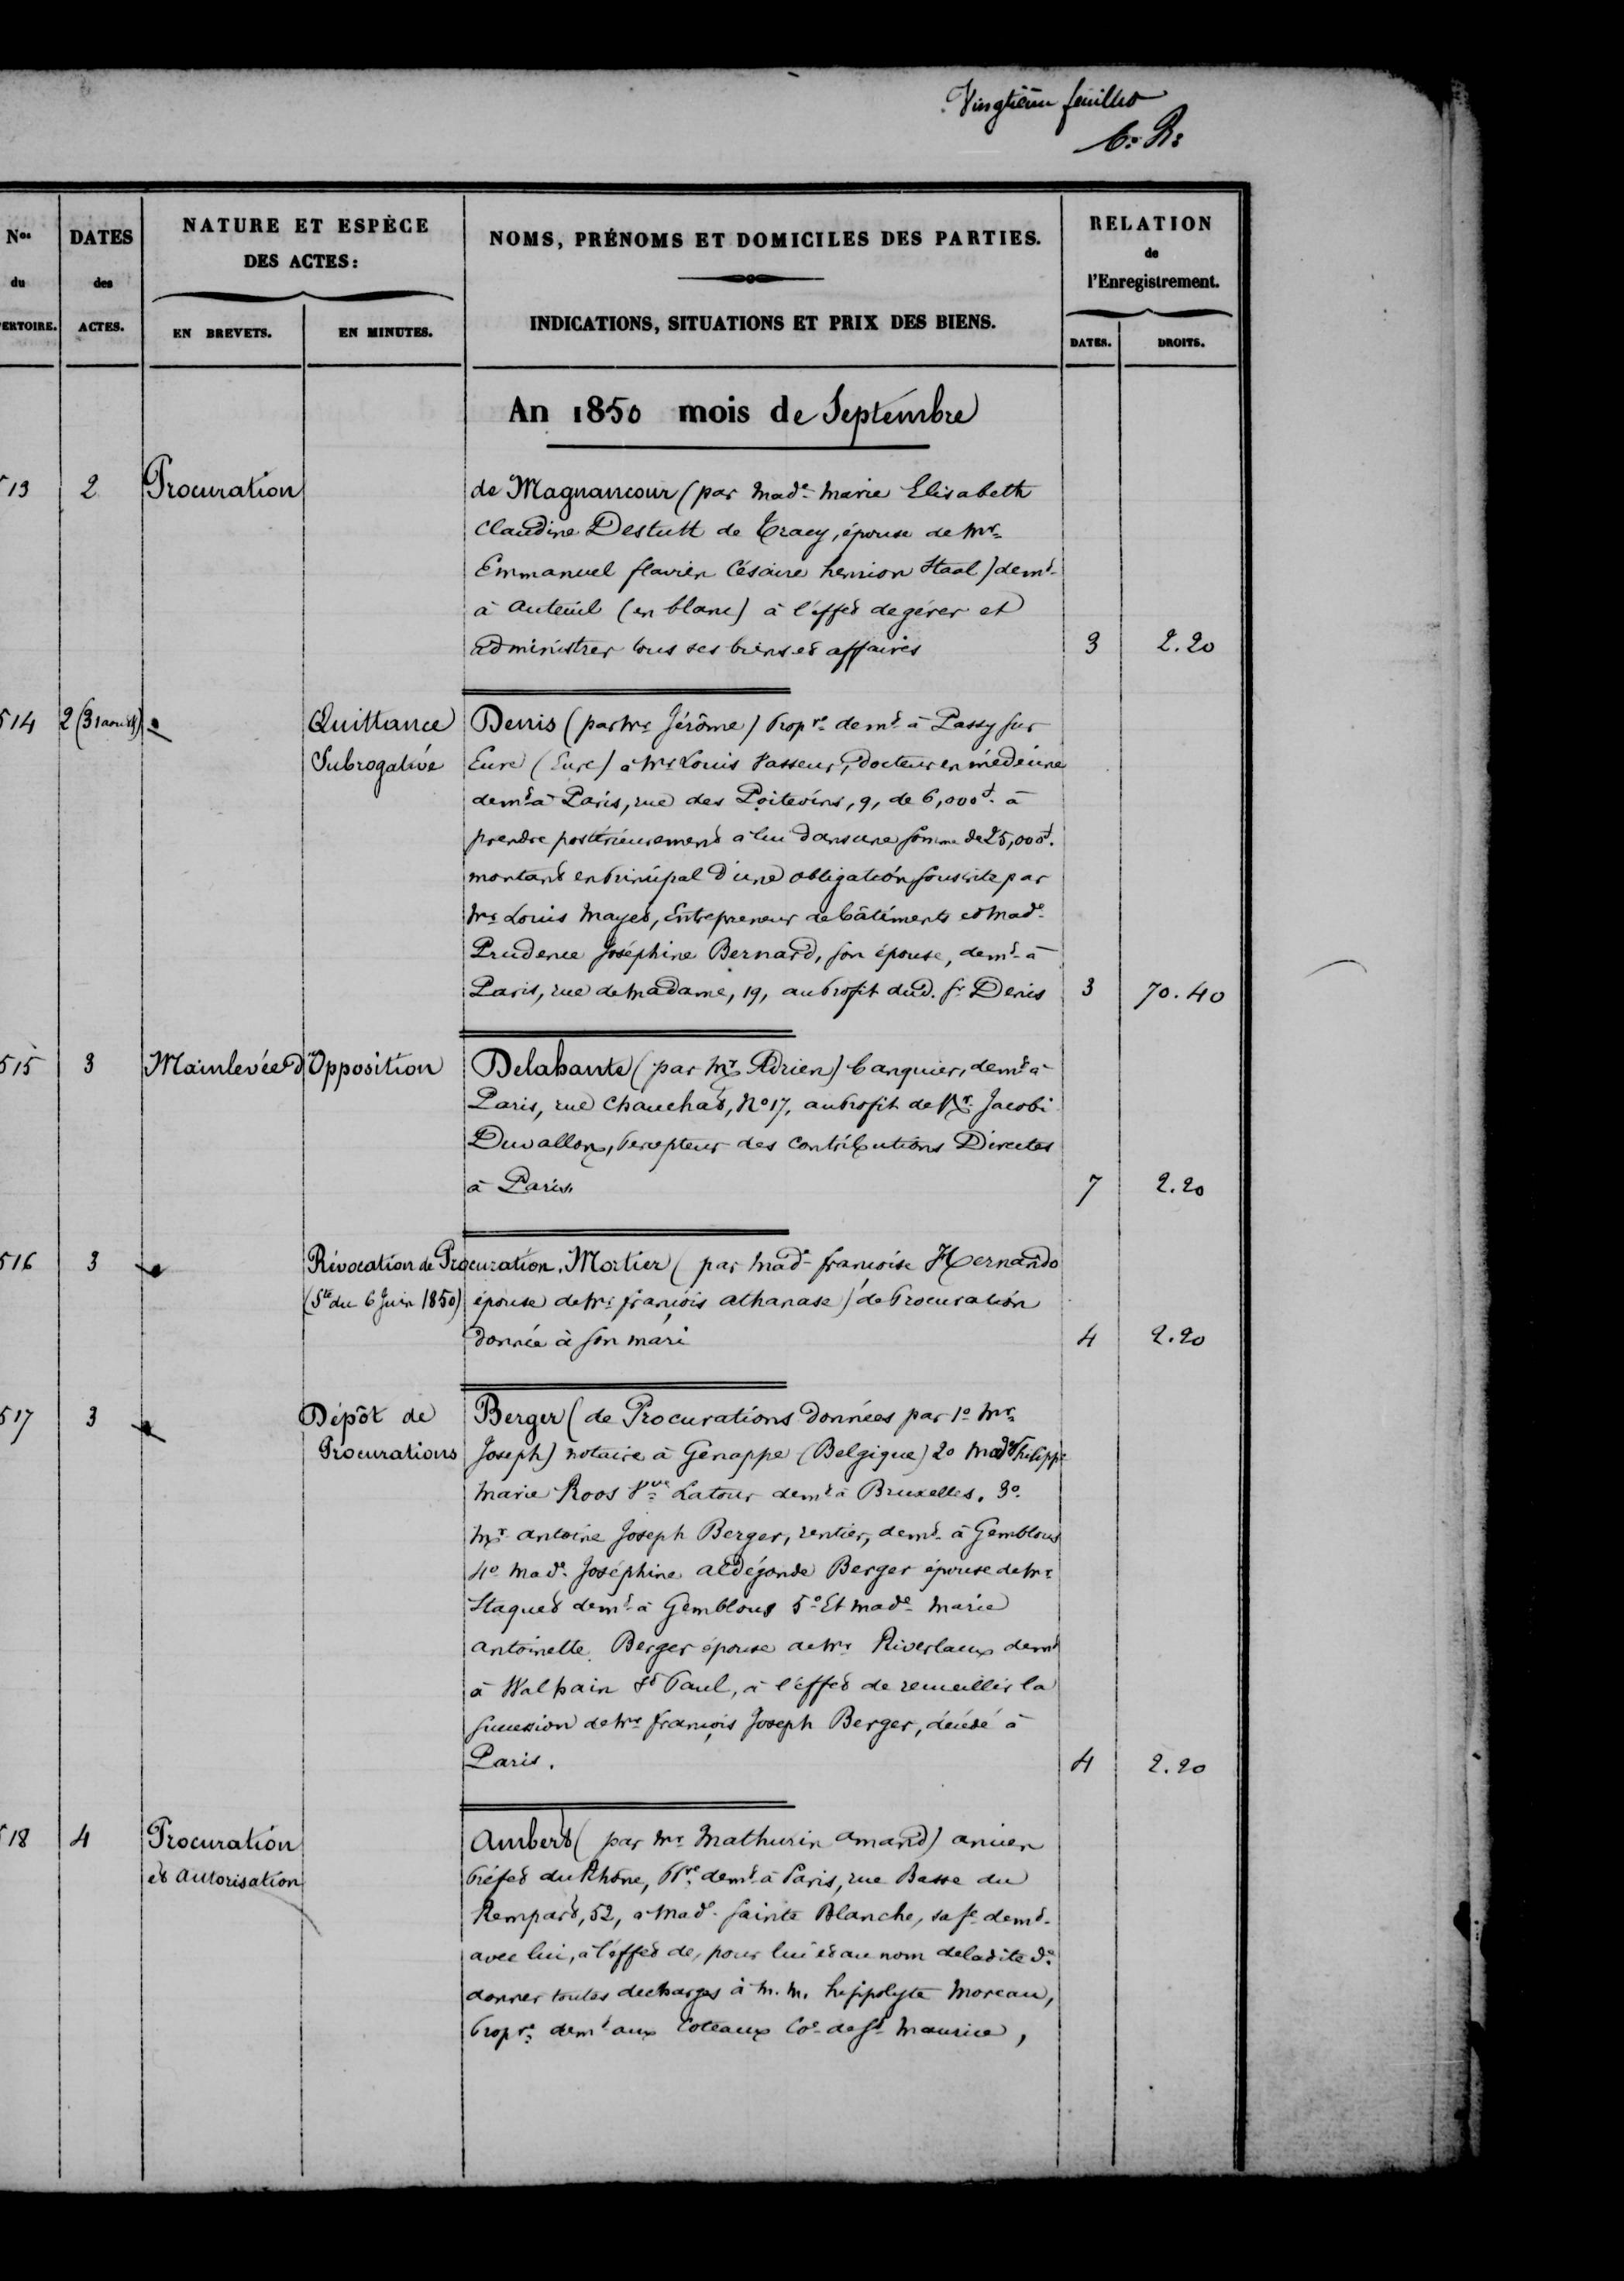 Vingtième feuillet
Nos du
ERTOIRE.
DATES des ACTES.
NATURE ET ESPÈCE
DES ACTES:
EN BREVETS.
EN MINUTES.
NOMS, PRÉNOMS ET DOMICILES DES PARTIES.
INDICATIONS, SITUATIONS ET PRIX DES BIENS.
RELATION
de
l'Enregistrement.
DATES.
DROITS.
An 1850 mois de Septembre
513 2 Procuration de Magnancour (par Made Marie Elisabeth
Claudine Destutt de Tracy, épouse de Mr
Emmanuel flavien Césaire henrion Staal) demt
à Auteuil (en blanc) à l'effet de gérer et
administrer tous ses biens et affaires 3 2.20
514 2 (31 août) Quittance Denis (par Mr Jérôme) Propre demt à Passy sur
Subrogative Eure (Eure) à Mr Louis Vasseur, Docteur en médecine
demt à Paris, rue des Poitevins, 9, de 6,000f. à
prendre postérieurement à lui dans une somme de 25,000f.
montant en principal d'une obligation souscrite par
Mr Louis Mayet, Entrepreneur de bâtiments et Made
Prudence Joséphine Bernard, son épouse, demt à
Paris, rue de Madame, 19, au profit dud. Sr Denis 3 70.40
515 3 Mainlevée d'Opposition Delahante (par Mr Adrien) banquier, demt à
Paris, rue Chauchat, No 17, au profit de Mr Jacobi
Duvallon, Percepteur des Contributions Directes
à Paris. 7 2.20
516 3 Révocation de Procuration. Mortier (par Made françoise Hernando
(Ste du 6 Juin 1850) épouse de Mr françois athanase) de Procuration
donnée à son mari 4 2.20
517 3 Dépôt de Berger (de Procurations données par 1o Mr
Procurations Joseph) notaire à Génappe (Belgique) 2o Made Philippe
Marie Roos Vve Latour demt à Bruxelles. 3o
Mr antoine Joseph Berger, rentier, demt à Gemblous
4o Made Joséphine aldégonde Berger épouse de Mr
Staquet demt à Gemblous 5o Et Made Marie
antoinette Berger épouse de Mr Riverlaux demt
à Walhain St Paul, à l'effet de recueillir la
succession de Mr françois Joseph Berger, décédé à
Paris. 4 2.20
518 4 Procuration Ambert (par Mr Mathurin amand) ancien
et autorisation Préfet du Rhône, Pre demt à Paris, rue Basse du
Rempart, 52, à Made Sainte Blanche, sa fe demt
avec lui, à l'effet de, pour lui et au nom de ladite de
donner toutes decharges à M. M. hippolyte Moreau,
Propre demt aux Coteaux Coe de St Maurice,